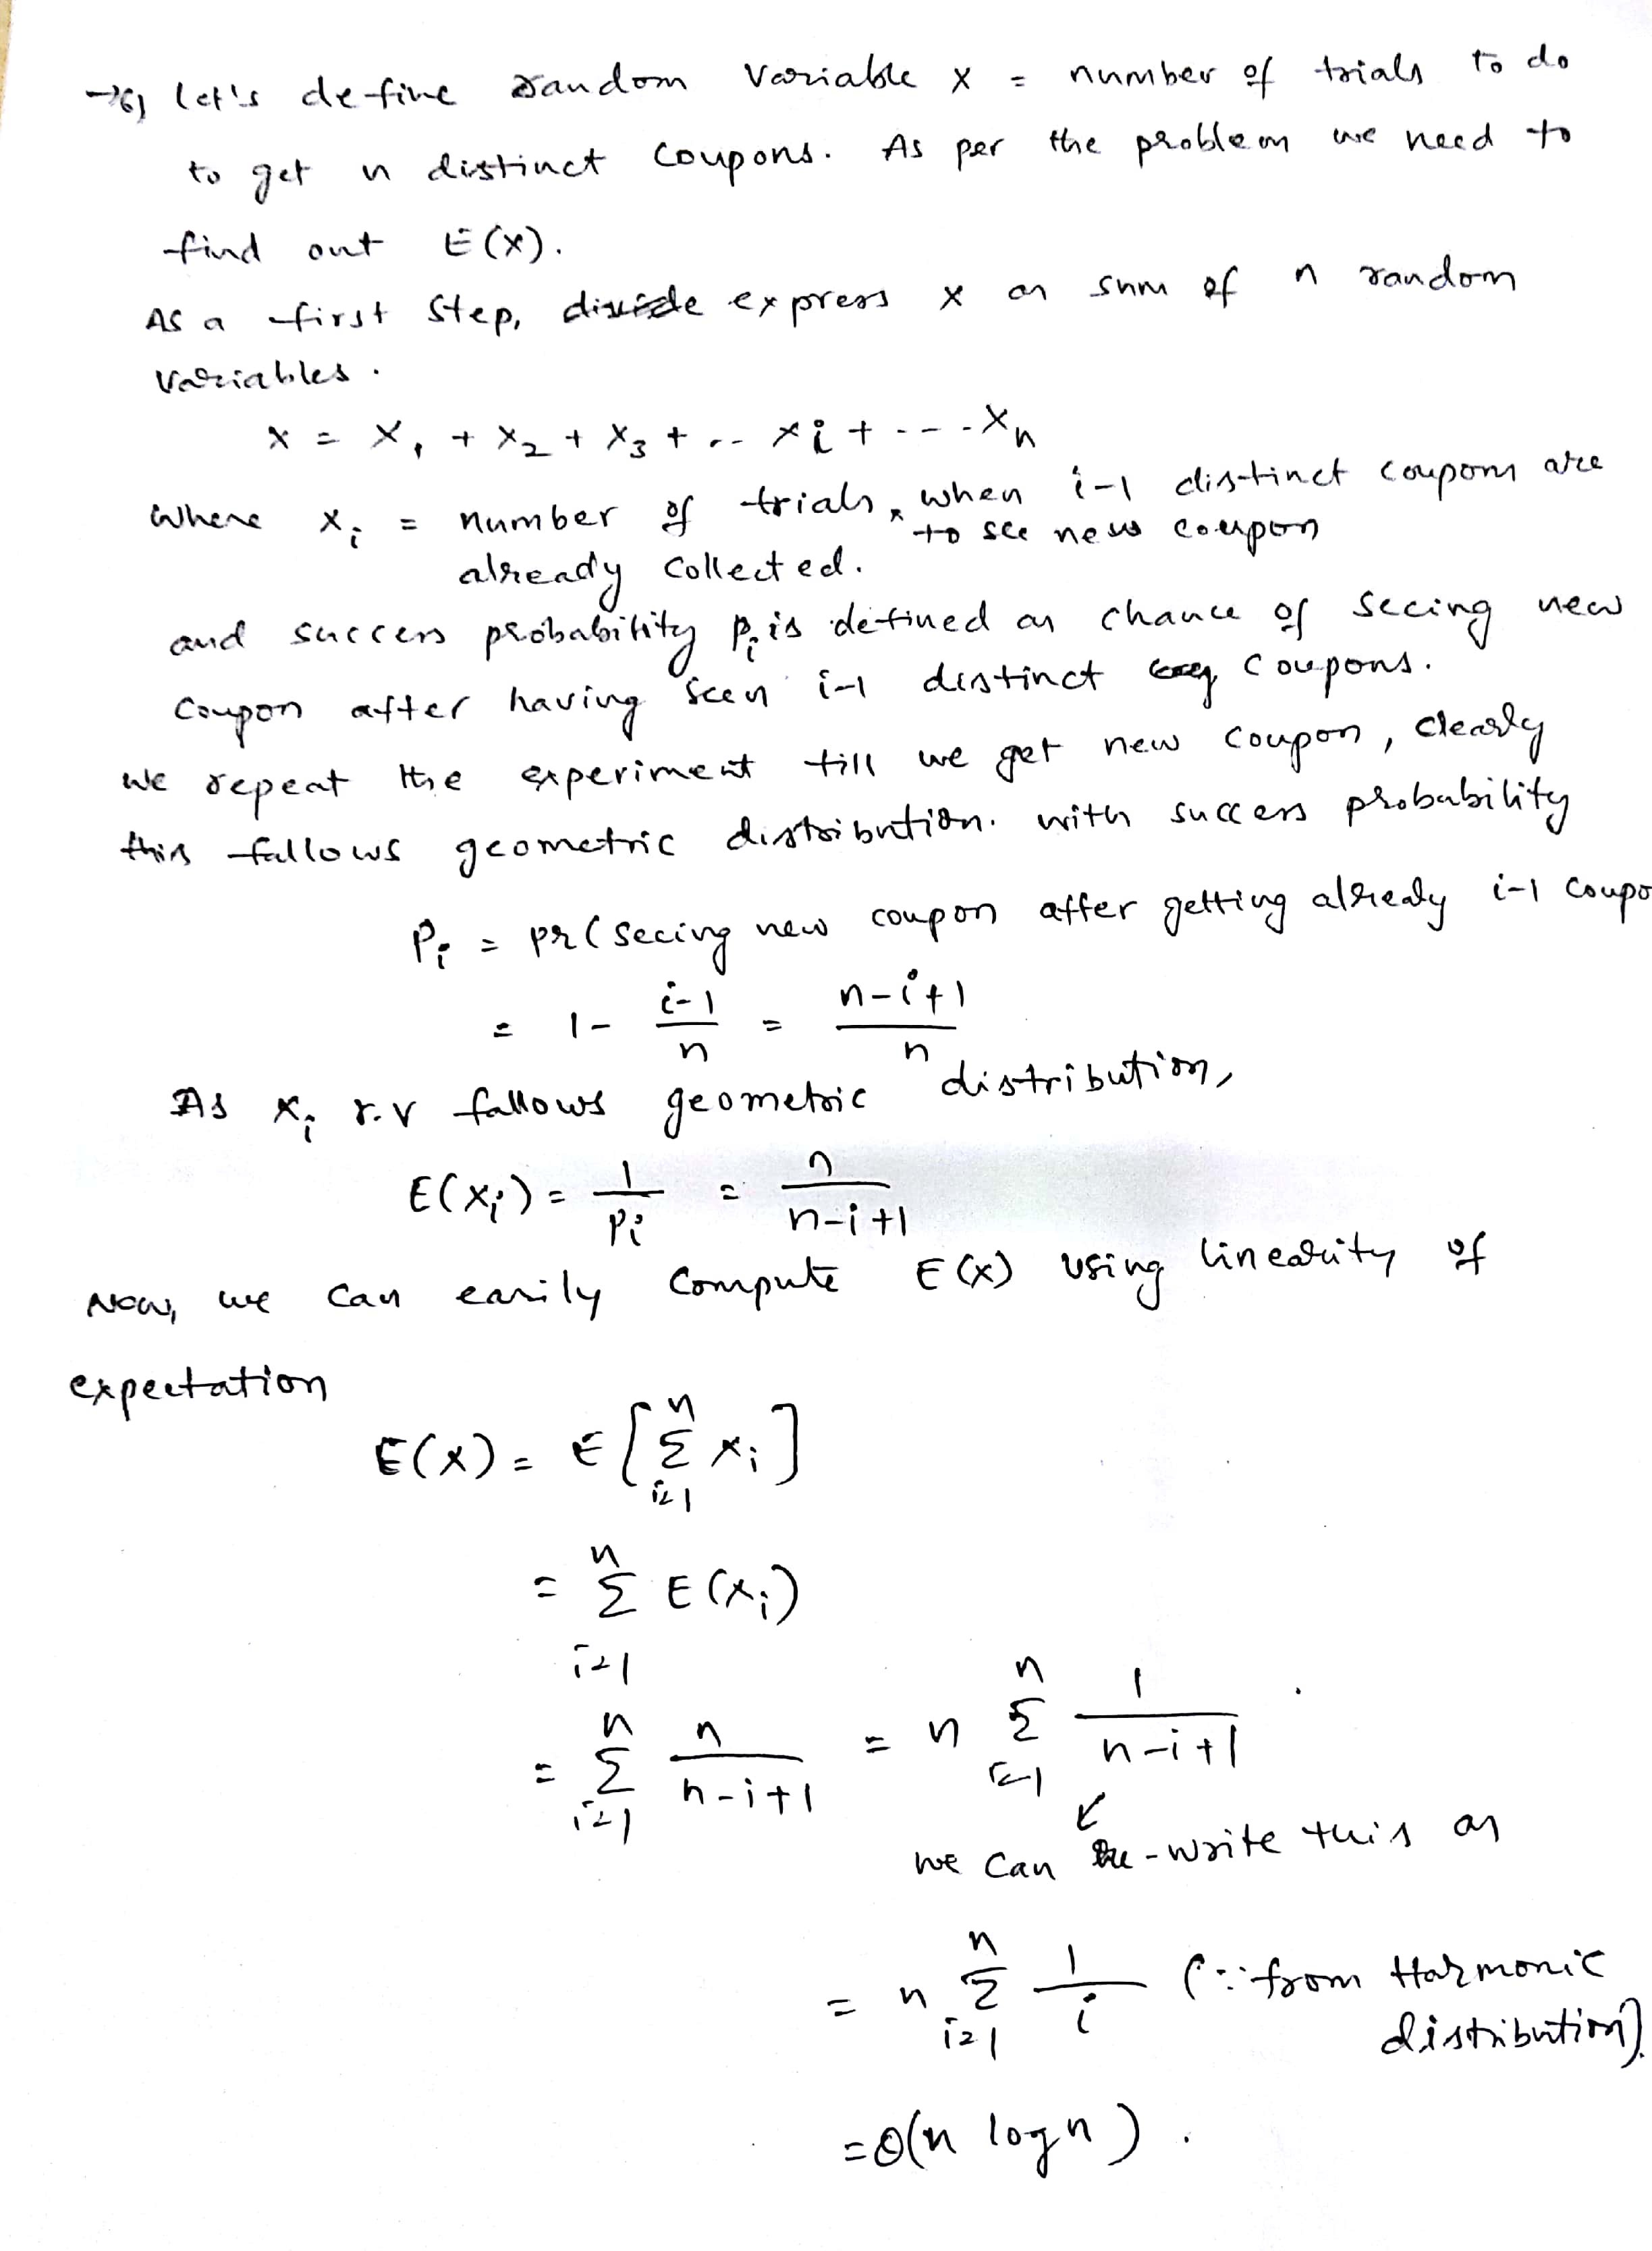 →6) let's define random variable X = number of trials to do
to get n distinct coupons. As per the problem we need to
find out E(X).
As a first step, express X as sum of n random
variables.
X = X₁ + X₂ + X₃ + .. Xi + ---- Xn
where Xi = number of trials to see new coupon when i-1 distinct coupons are
already collected.
and success probability Pi is defined as chance of seeing new
coupon after having seen i-1 distinct coupons.
we repeat the experiment till we get new coupon, clearly
this fallows geometric distribution. with success probability
Pi = pr(seeing new coupon after getting already i-1 coupo
= 1 - (i-1)/n = (n-i+1)/n
As Xi r.v fallows geometric distribution,
E(Xi) = 1/Pi = n/(n-i+1)
Now, we can easily compute E(X) using linearity of
expectation
E(X) = E[∑_{i=1}^{n} Xi]
= ∑_{i=1}^{n} E(Xi)
= ∑_{i=1}^{n} n/(n-i+1) = n ∑_{i=1}^{n} 1/(n-i+1) .
↙
we can re-write this as
= n ∑_{i=1}^{n} 1/i (∵ from Harmonic
distribution).
= O(n log n) .